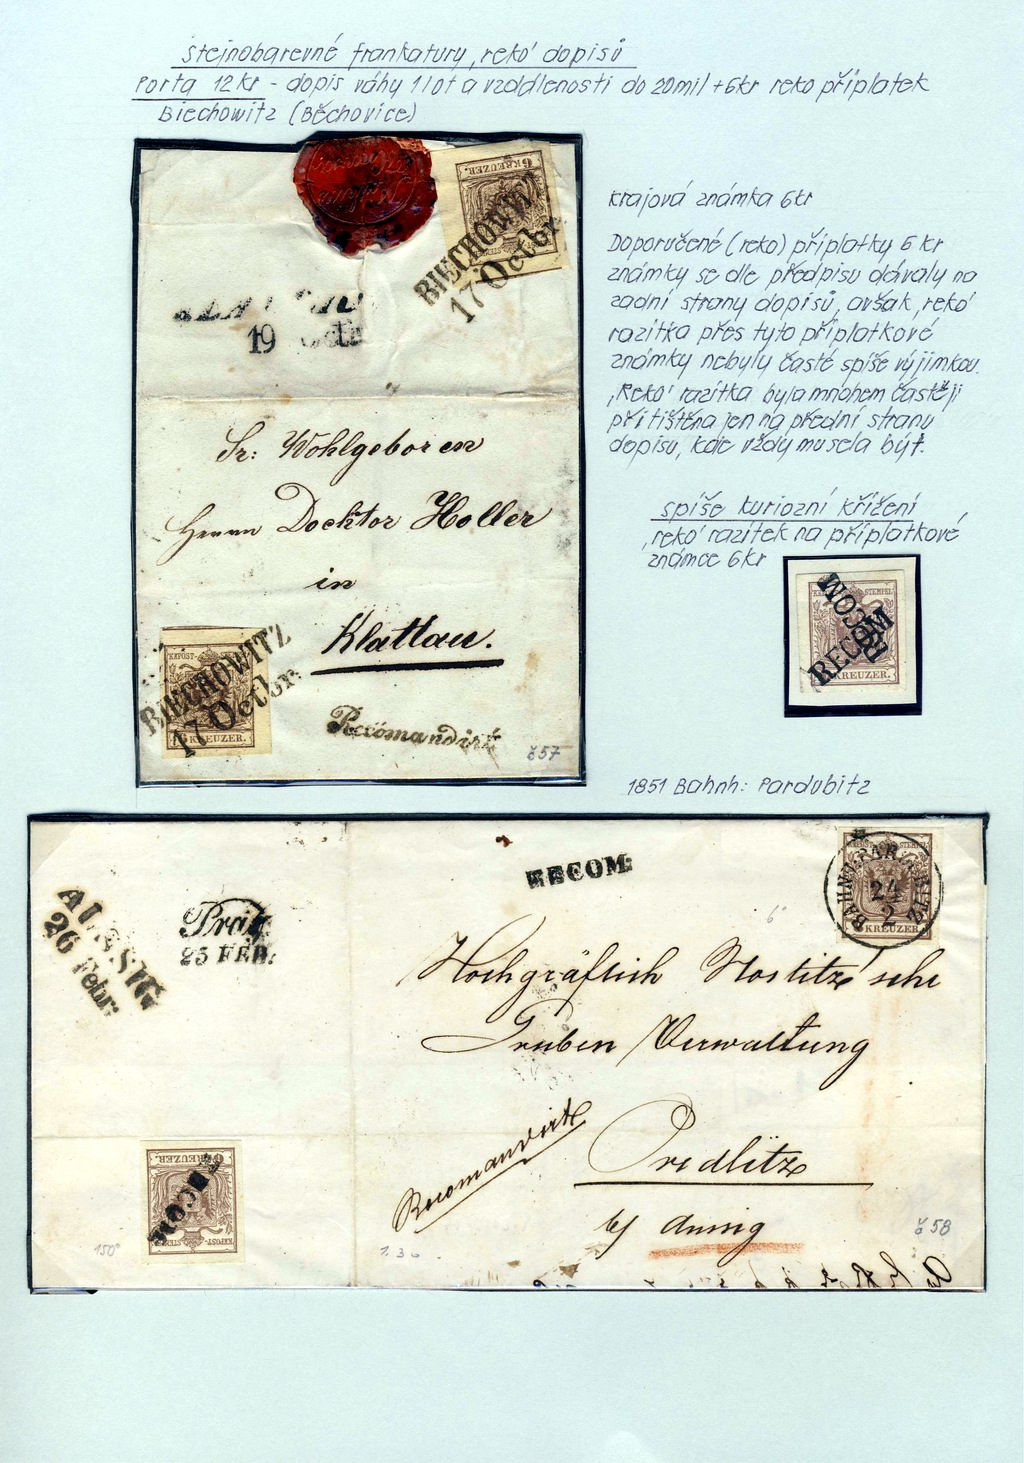 Stejnobarevné frankatury "reko" dopisů
Porta 12 kr - dopis váhy 1 lot a vzddlenosti do 20 mil + 6kr reko příplatek
Biechowitz (Běchovice)
6 KREUZER.
BIECHOWITZ
17 Octbr
19
Sr: Wohlgeboren
Herrn Docktor Holler
in
Klattau.
KK POST-STEMPEL
BIECHOWITZ
17 Octbr.
6 KREUZER.
Recomandirt
č 57
Krajová známka 6kr
Doporučené (reko) příplatky 6 kr
známky se dle předpisu dávaly na
zadní strany dopisů, avšak "reko"
razítka přes tyto příplatkové
známky nebyly časté spíše výjimkou.
"Reko" razítka byla mnohem častěji
přitištěna jen na přední stranu
dopisu, kde vždy musela být.
spíše kuriozní křížení
"reko" razítek na příplatkové
známce 6kr
RECOM
RECOM
KREUZER.
1851 Bahnh: Pardubitz
AUSSIG
26 Febr:
Prag
25 FEB:
RECOM:
BAHNH:PARDUBITZ
24
2
6 KREUZER.
6°
Hochgräflich Nostitz'sche
Gruben Verwaltung
Predlitz
by Aussig
Recomandirt
6 KREUZER.
RECOM:
KK POST-STEMPEL
150°
1.30
č 58